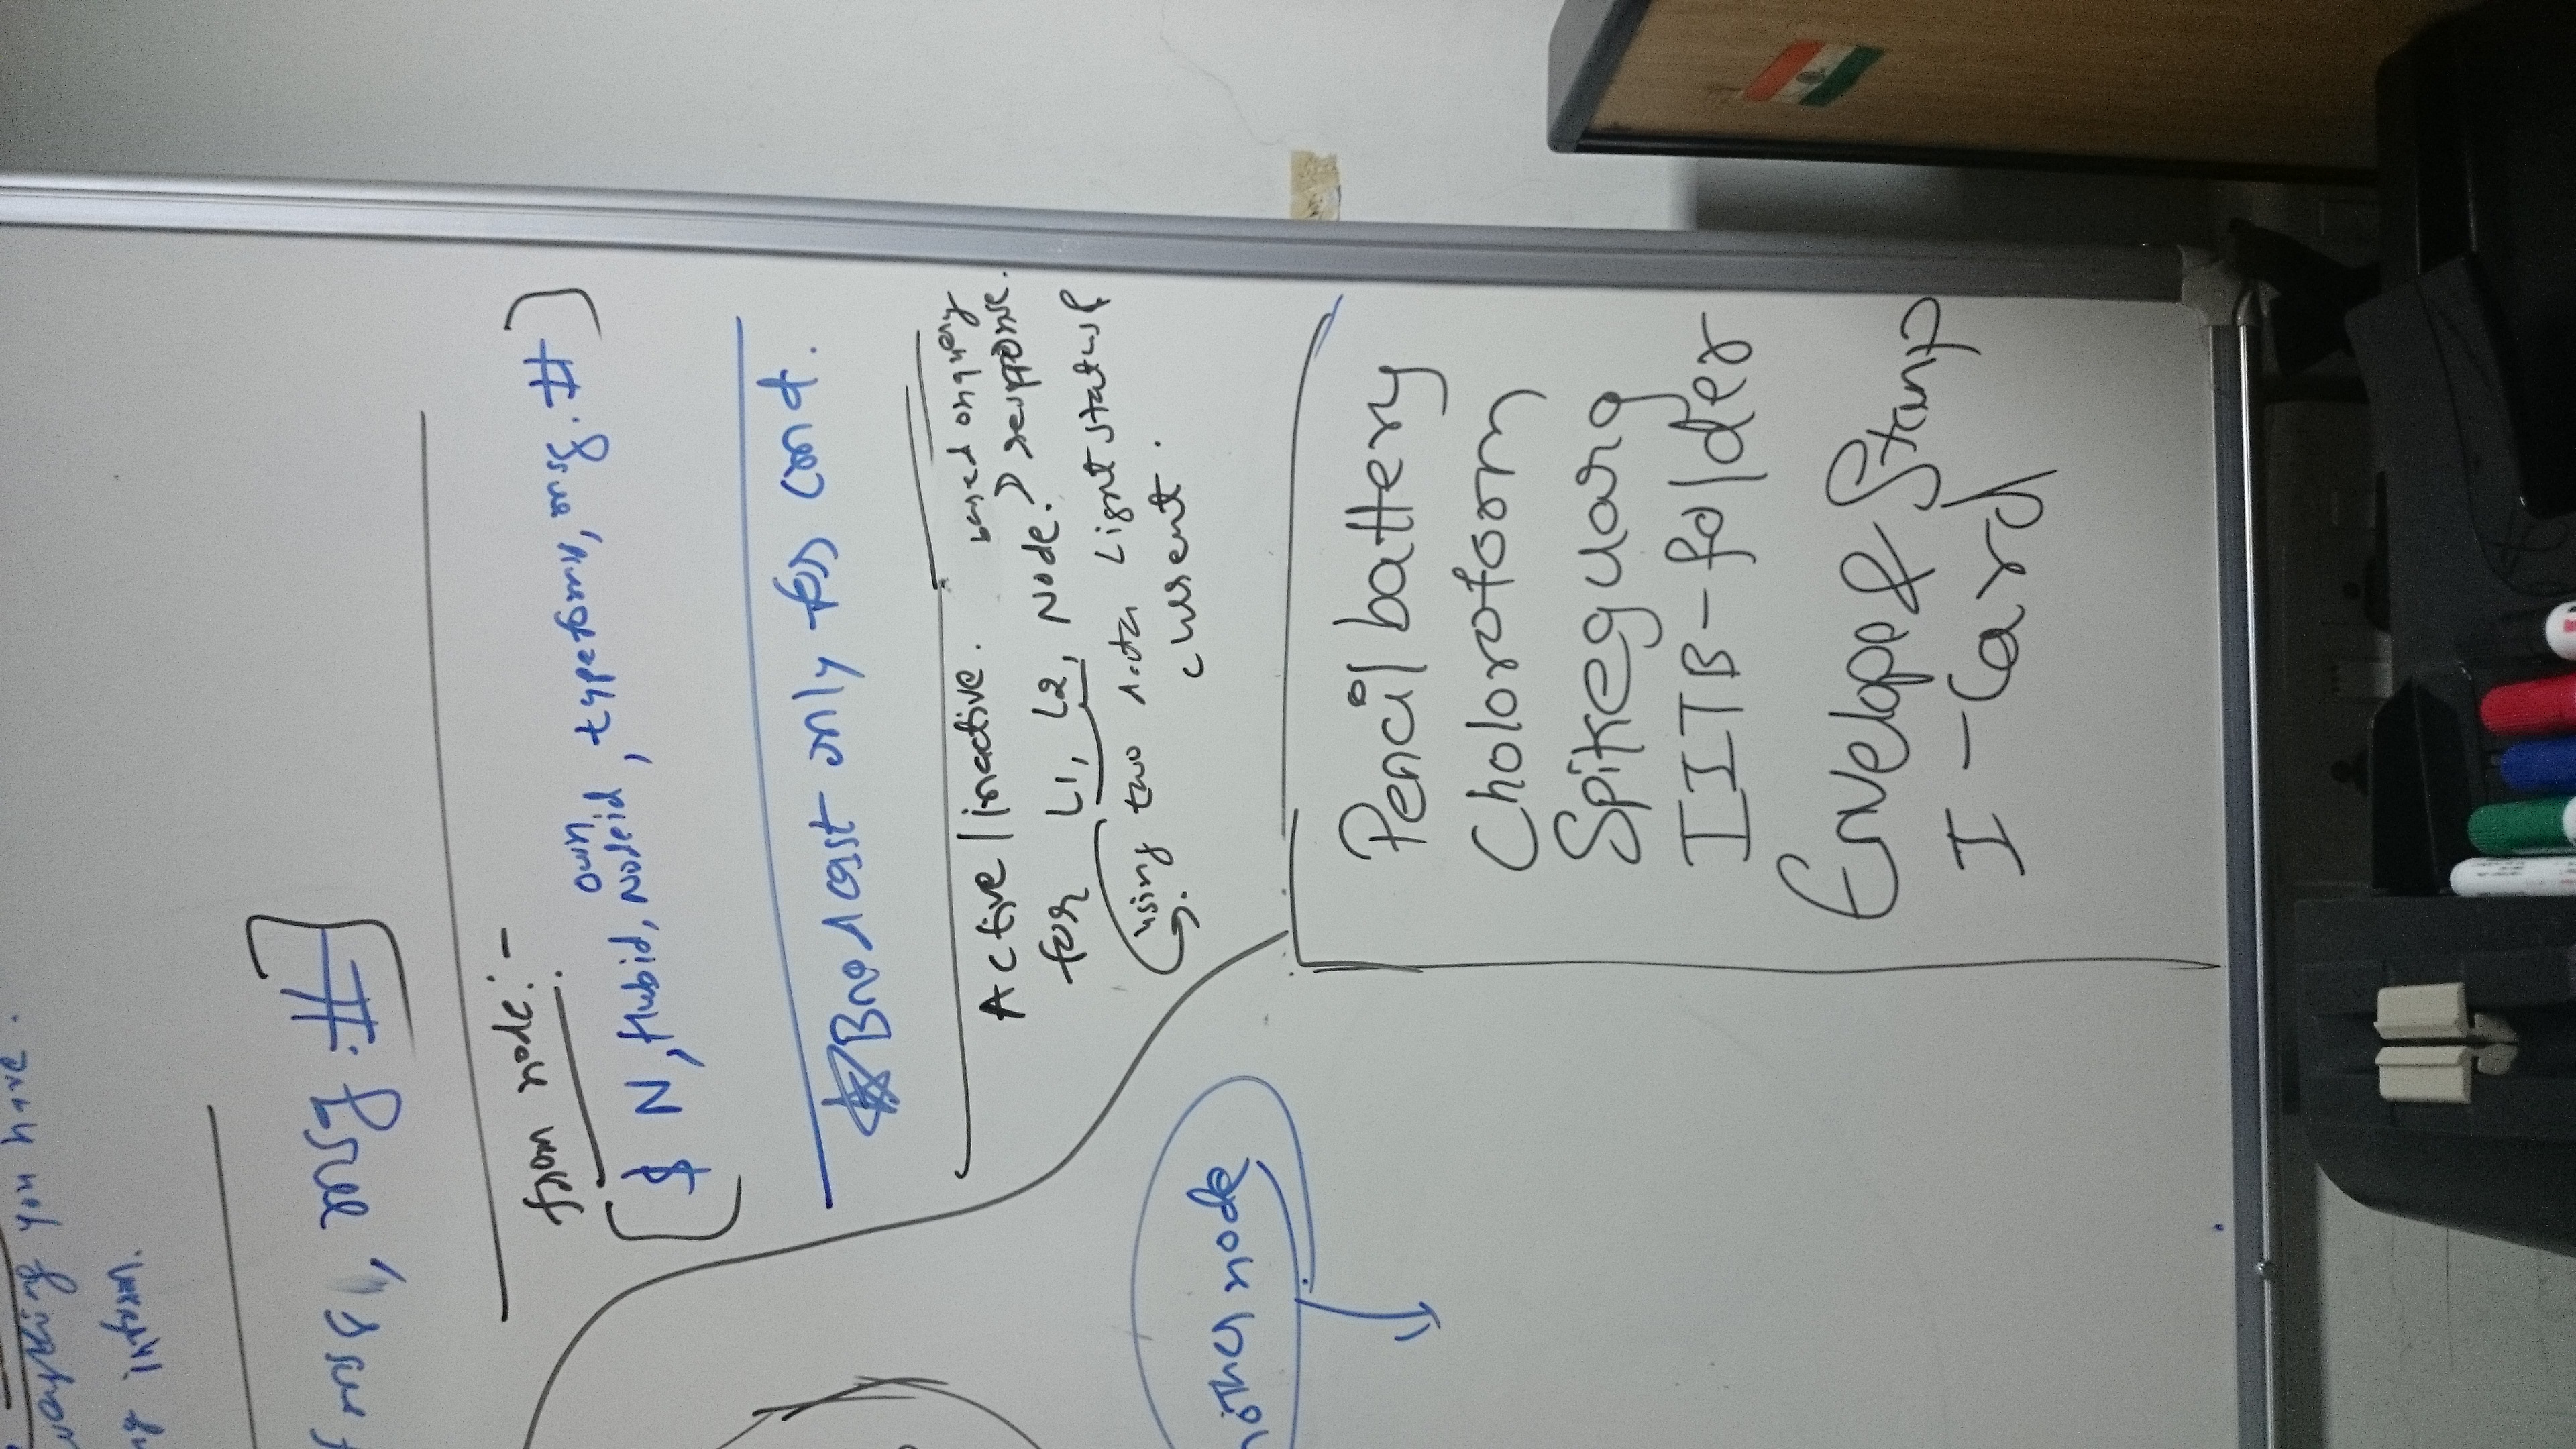 everything you have.
ng inform.
f msg, msg.#]
from node:-
own
[$ N, Hubid, Nodeid, typeofmsg, msg. #]
Brodcast only for cmd.
Active/inactive.
based on query
for L1, L2, Node. response.
using two data Light status &
current.
nother node
Pencil battery
Choloroform
Spikeguarg
IITB-folder
Envelope & Stamp
I-Card